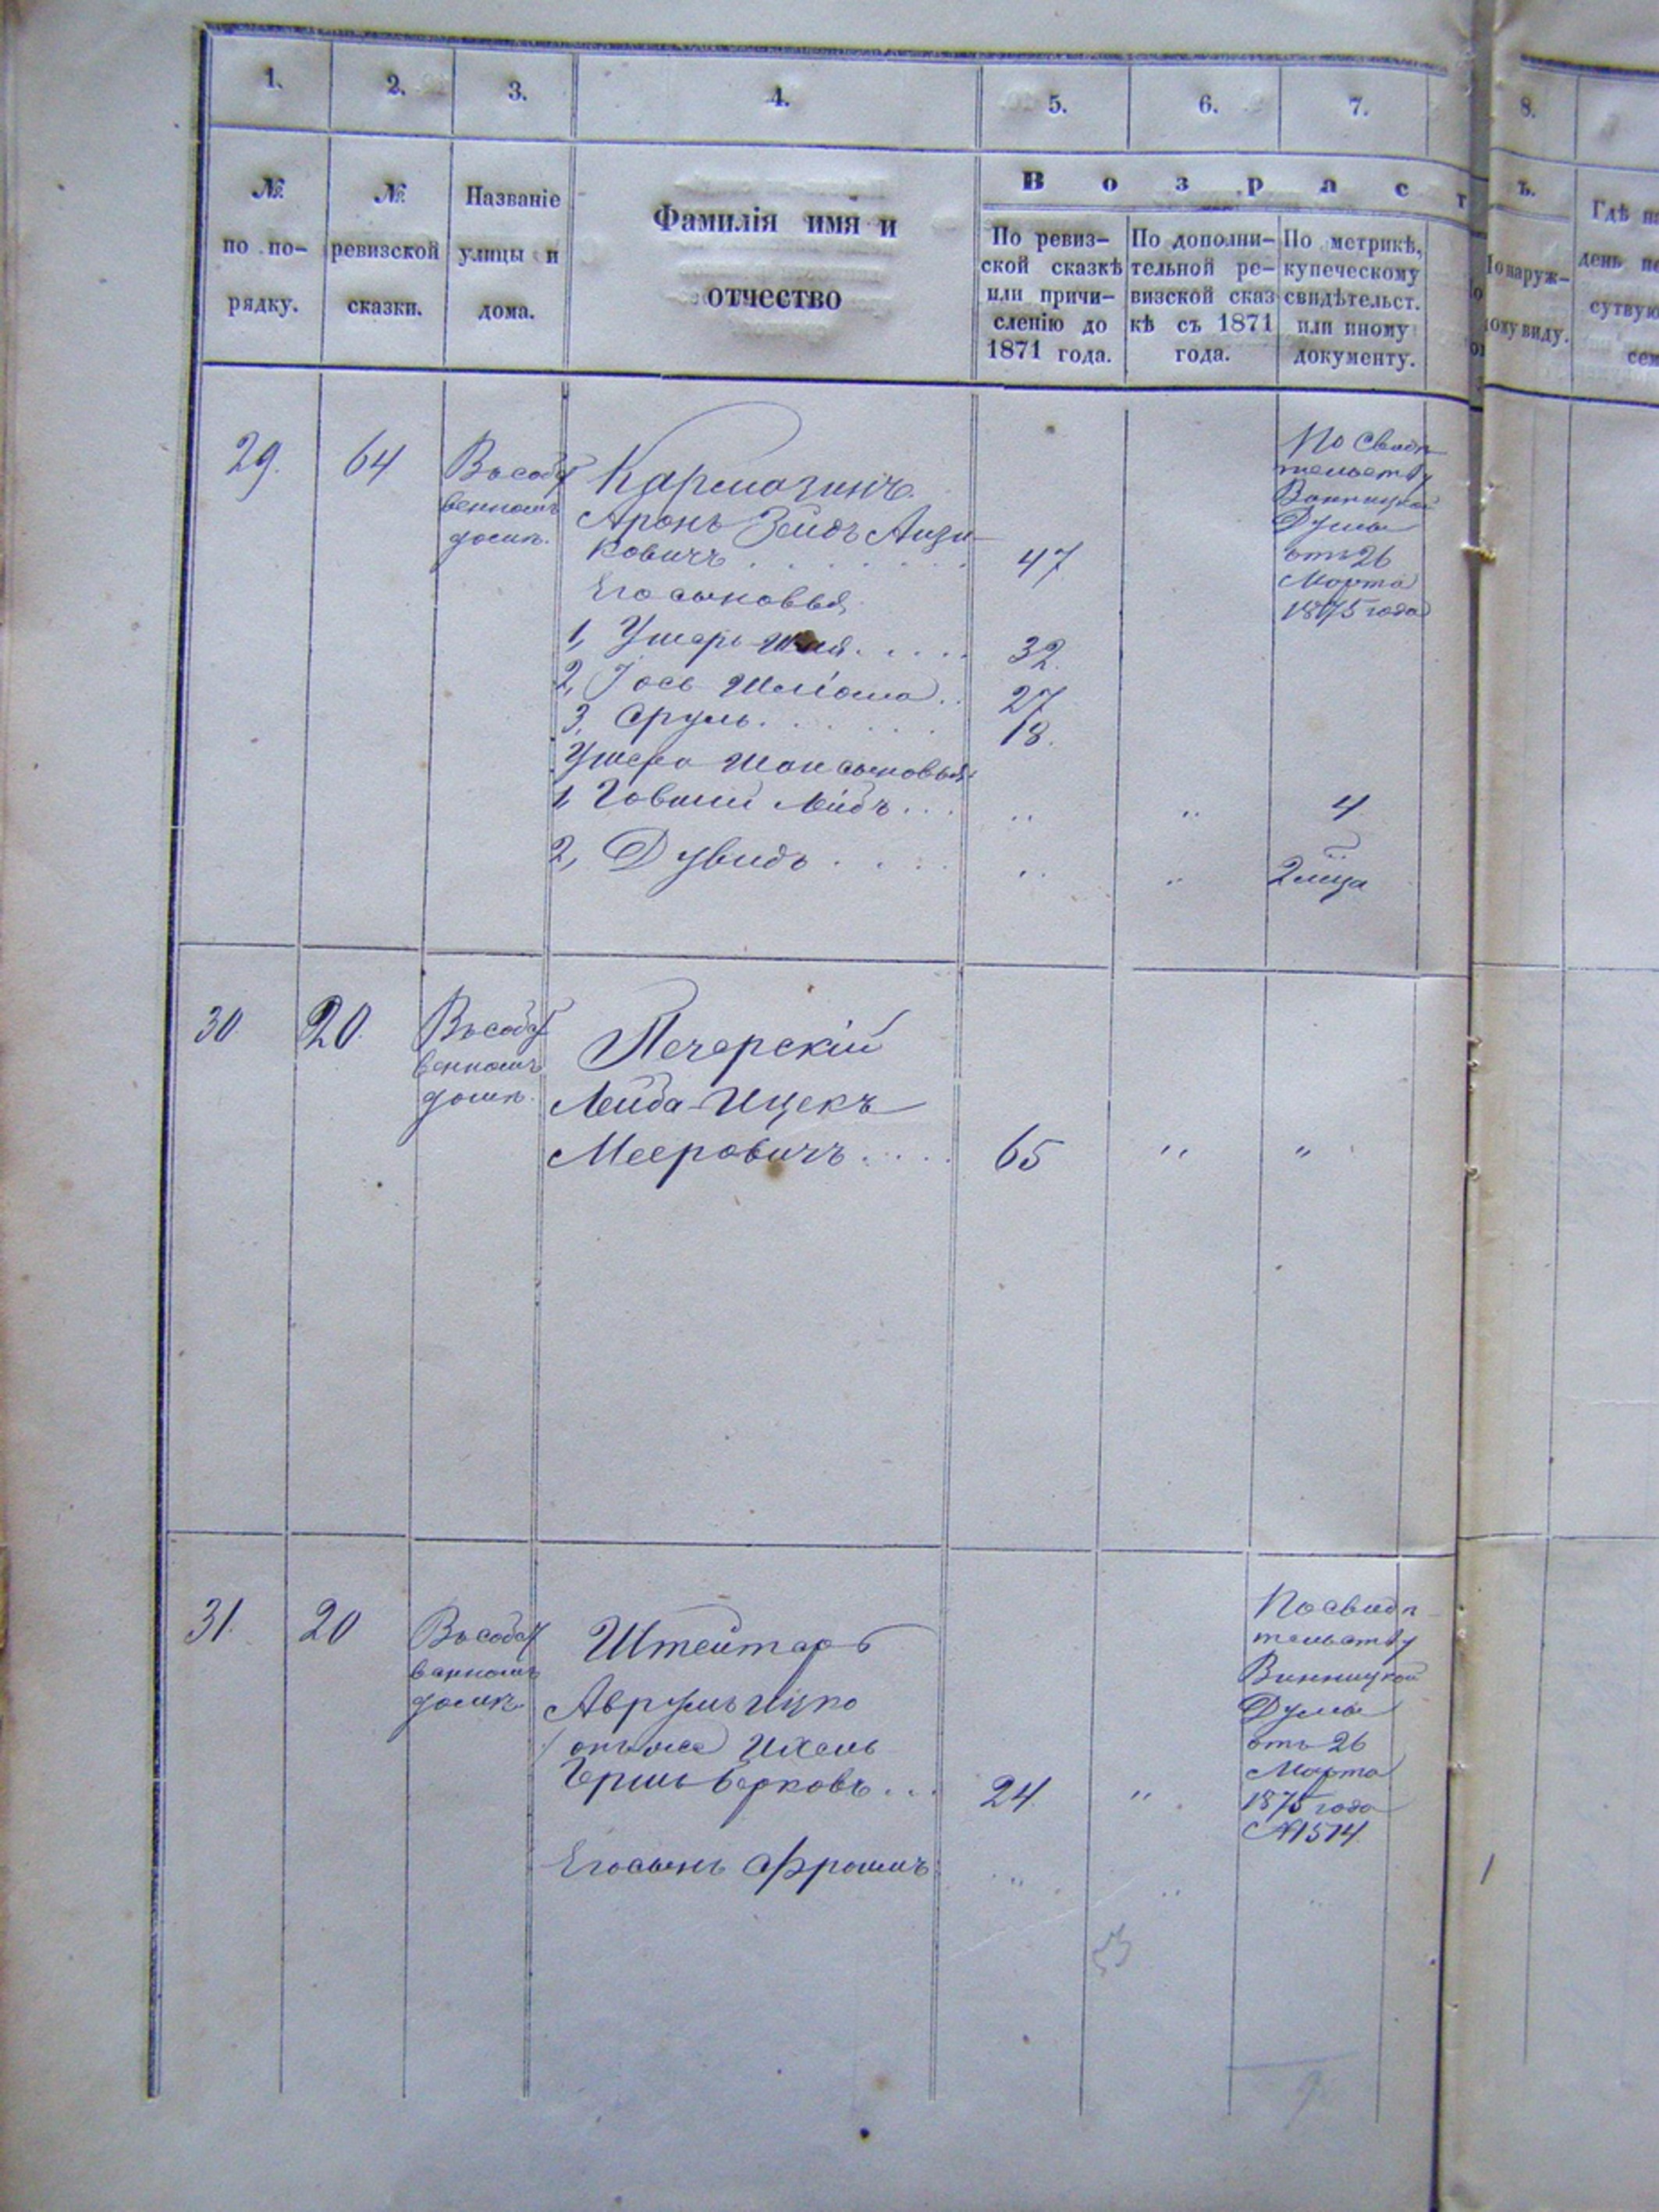 1. 2. 3. 4. 5. 6. 7. 8.
№ по по-
рядку.
№
ревизской
сказки.
Названіе
улицы и
дома.
Фамилія имя и
отчество
В о з р а с т ъ.
По ревиз-
ской сказкѣ
или причи-
сленію до
1871 года.
По дополни-
тельной ре-
визской сказ
кѣ съ 1871
года.
По метрикѣ,
купеческому
свидѣтельст.
или иному
документу.
По наруж-
ному виду.
Гдѣ на
день
сутвую
29. 64 Въ собст
венномъ
домѣ.
Кармазинъ
Аронъ Зейдъ Айзи-
ковичъ 47
Его сыновья
1, Ушеръ Шая 32.
2, Іось Шліома 27
3, Сруль 18.
Ушера Шаи сыновья
1, Говший Лейбъ " " 4
2, Дувидъ " " 2 мца
По свидѣ
тельству
Винницкой
Думы
отъ 26
Марта
1875 года
30 20. Въ собст
венномъ
домѣ.
Печерскій
Лейба-Ицекъ
Мееровичъ 65 " "
31. 20 Въ собст
венномъ
домѣ
Аврумъ Ицко
онъ же Ихель
Гершъ Берковъ 24 "
Его сынъ Фроимъ " " "
По свидѣ
тельству
Винницкой
Думы
отъ 26
Марта
1875 года
№1514
1